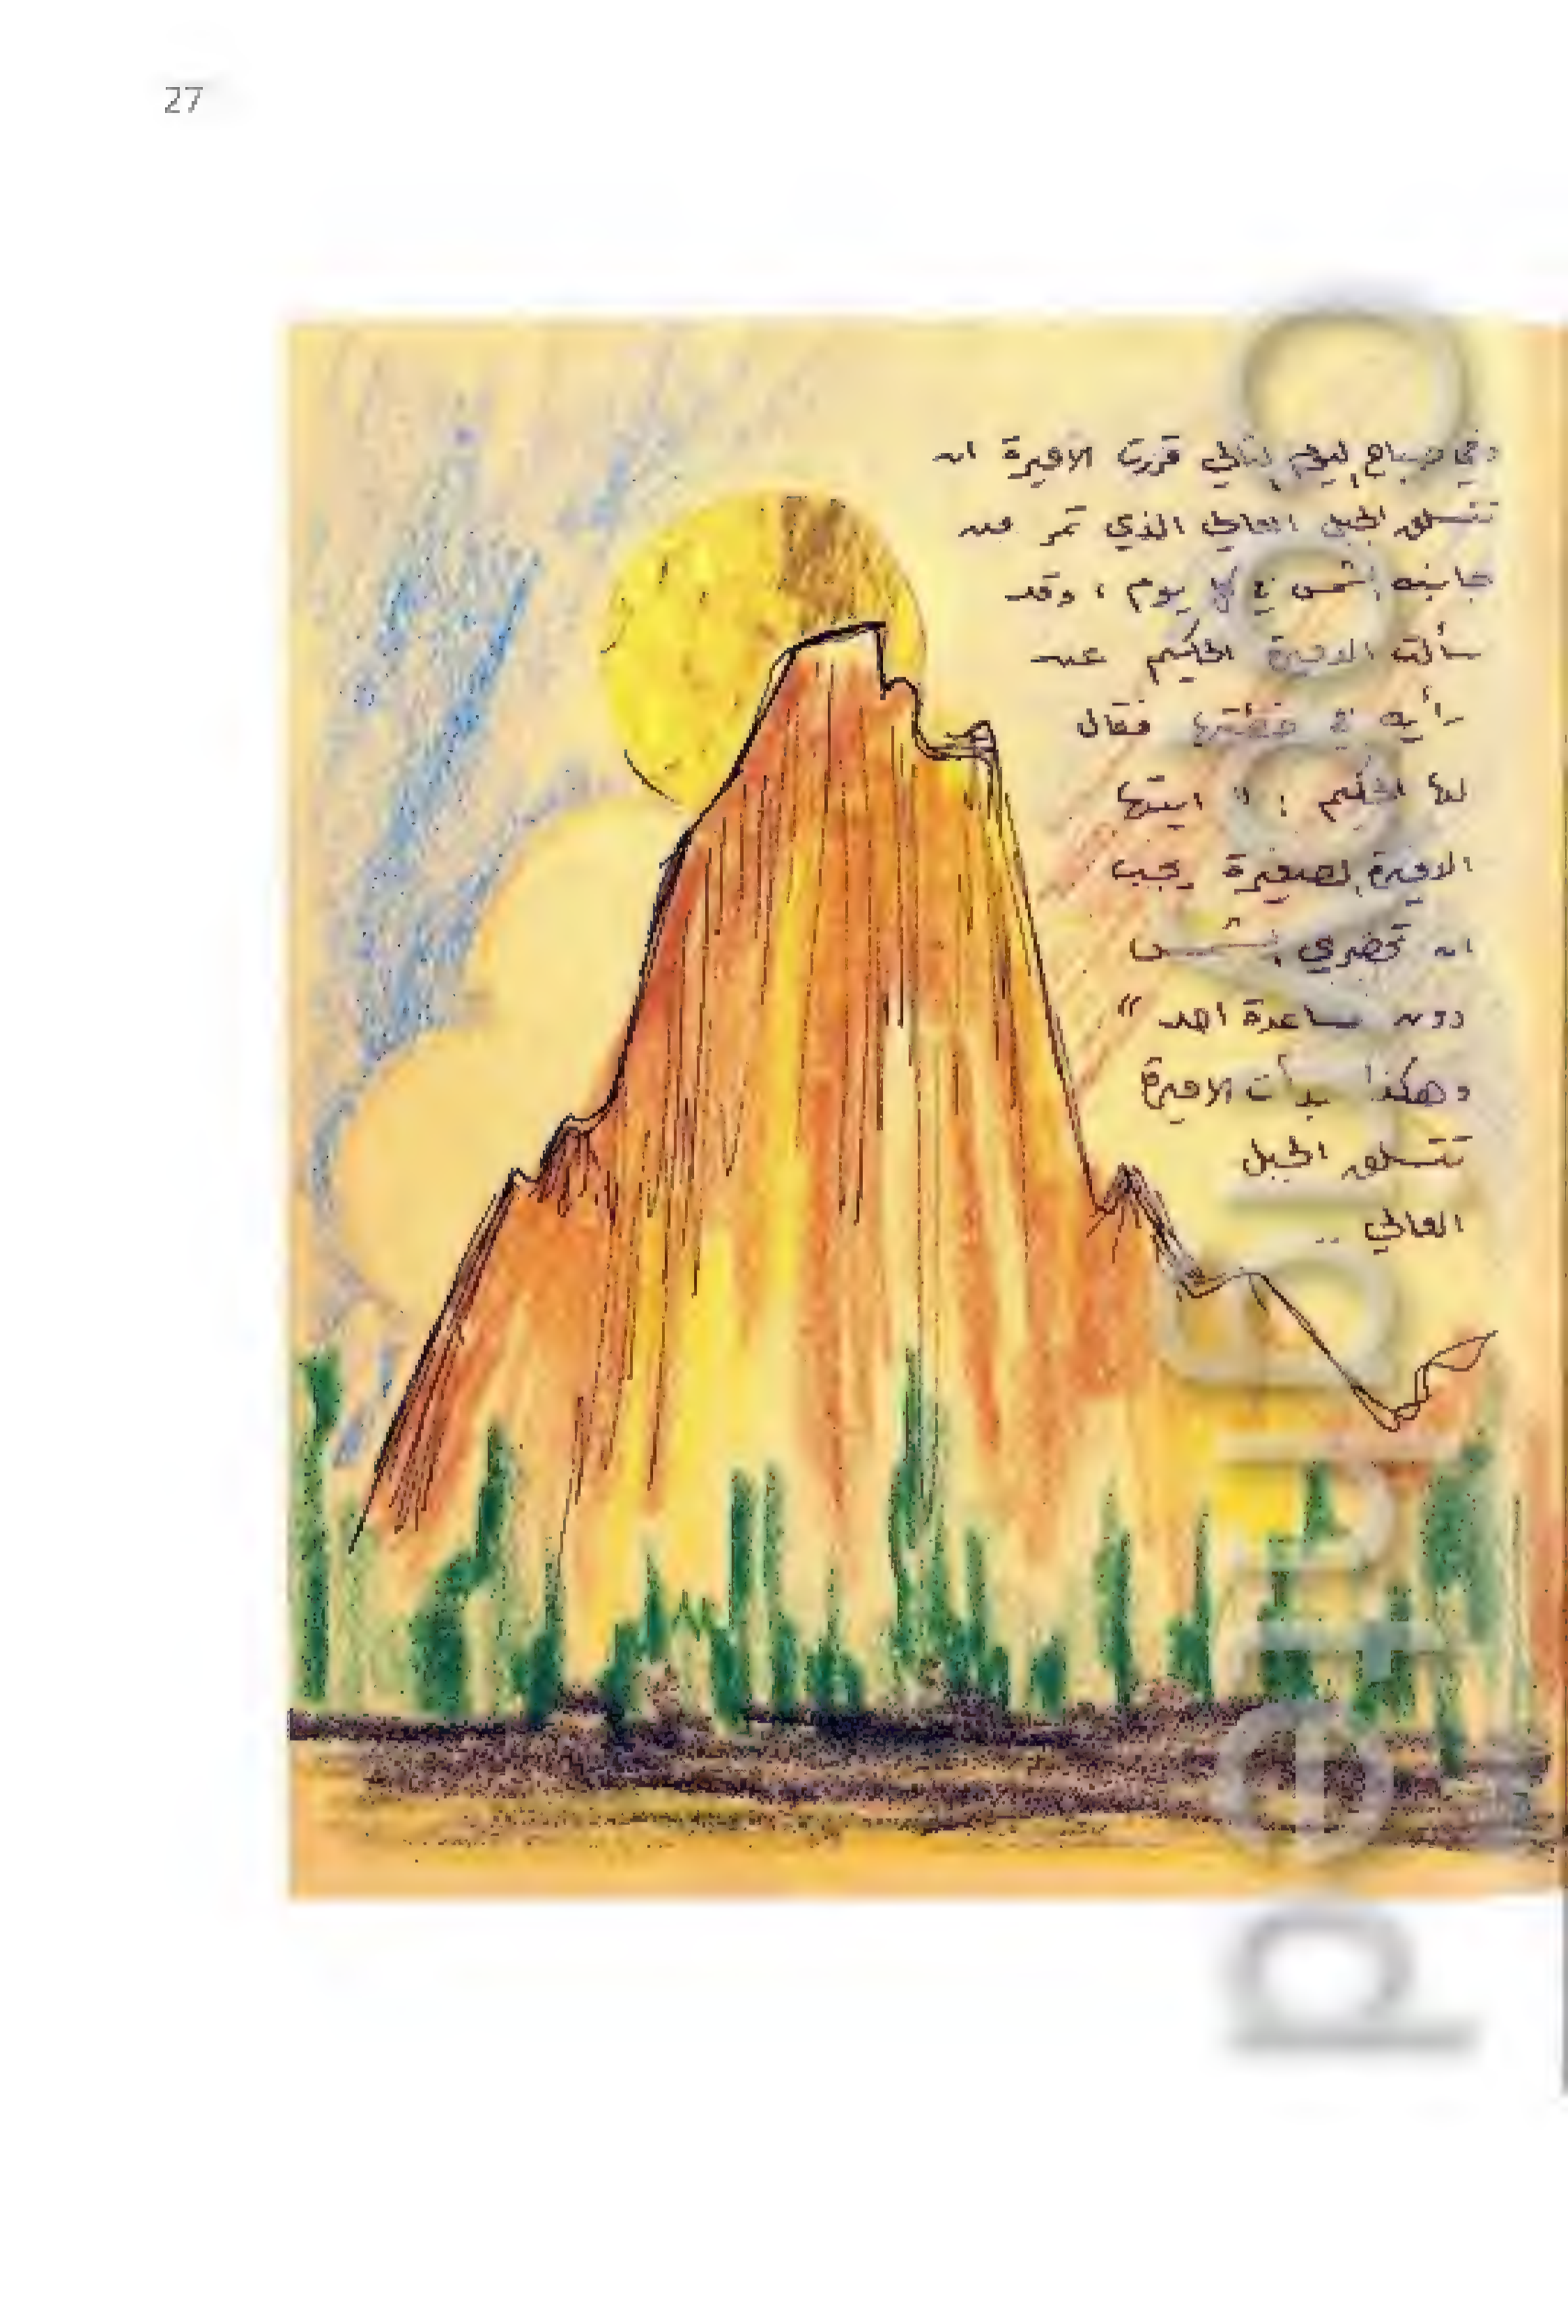 27
وفي صباح اليوم التالي قررت الاميرة ان
تتسلق الجبل العالي الذي تمر من
جانبه الشمس في كل يوم ، وقد
سألت الاميرة الحكيم عن
رأيه في خطتها فقال
لها الحكيم : " ايتها
الاميرة الصغيرة يجب
ان تحضري الشمس
دون مساعدة احد "
وهكذا بدأت الاميرة
تتسلق الجبل
العالي ..